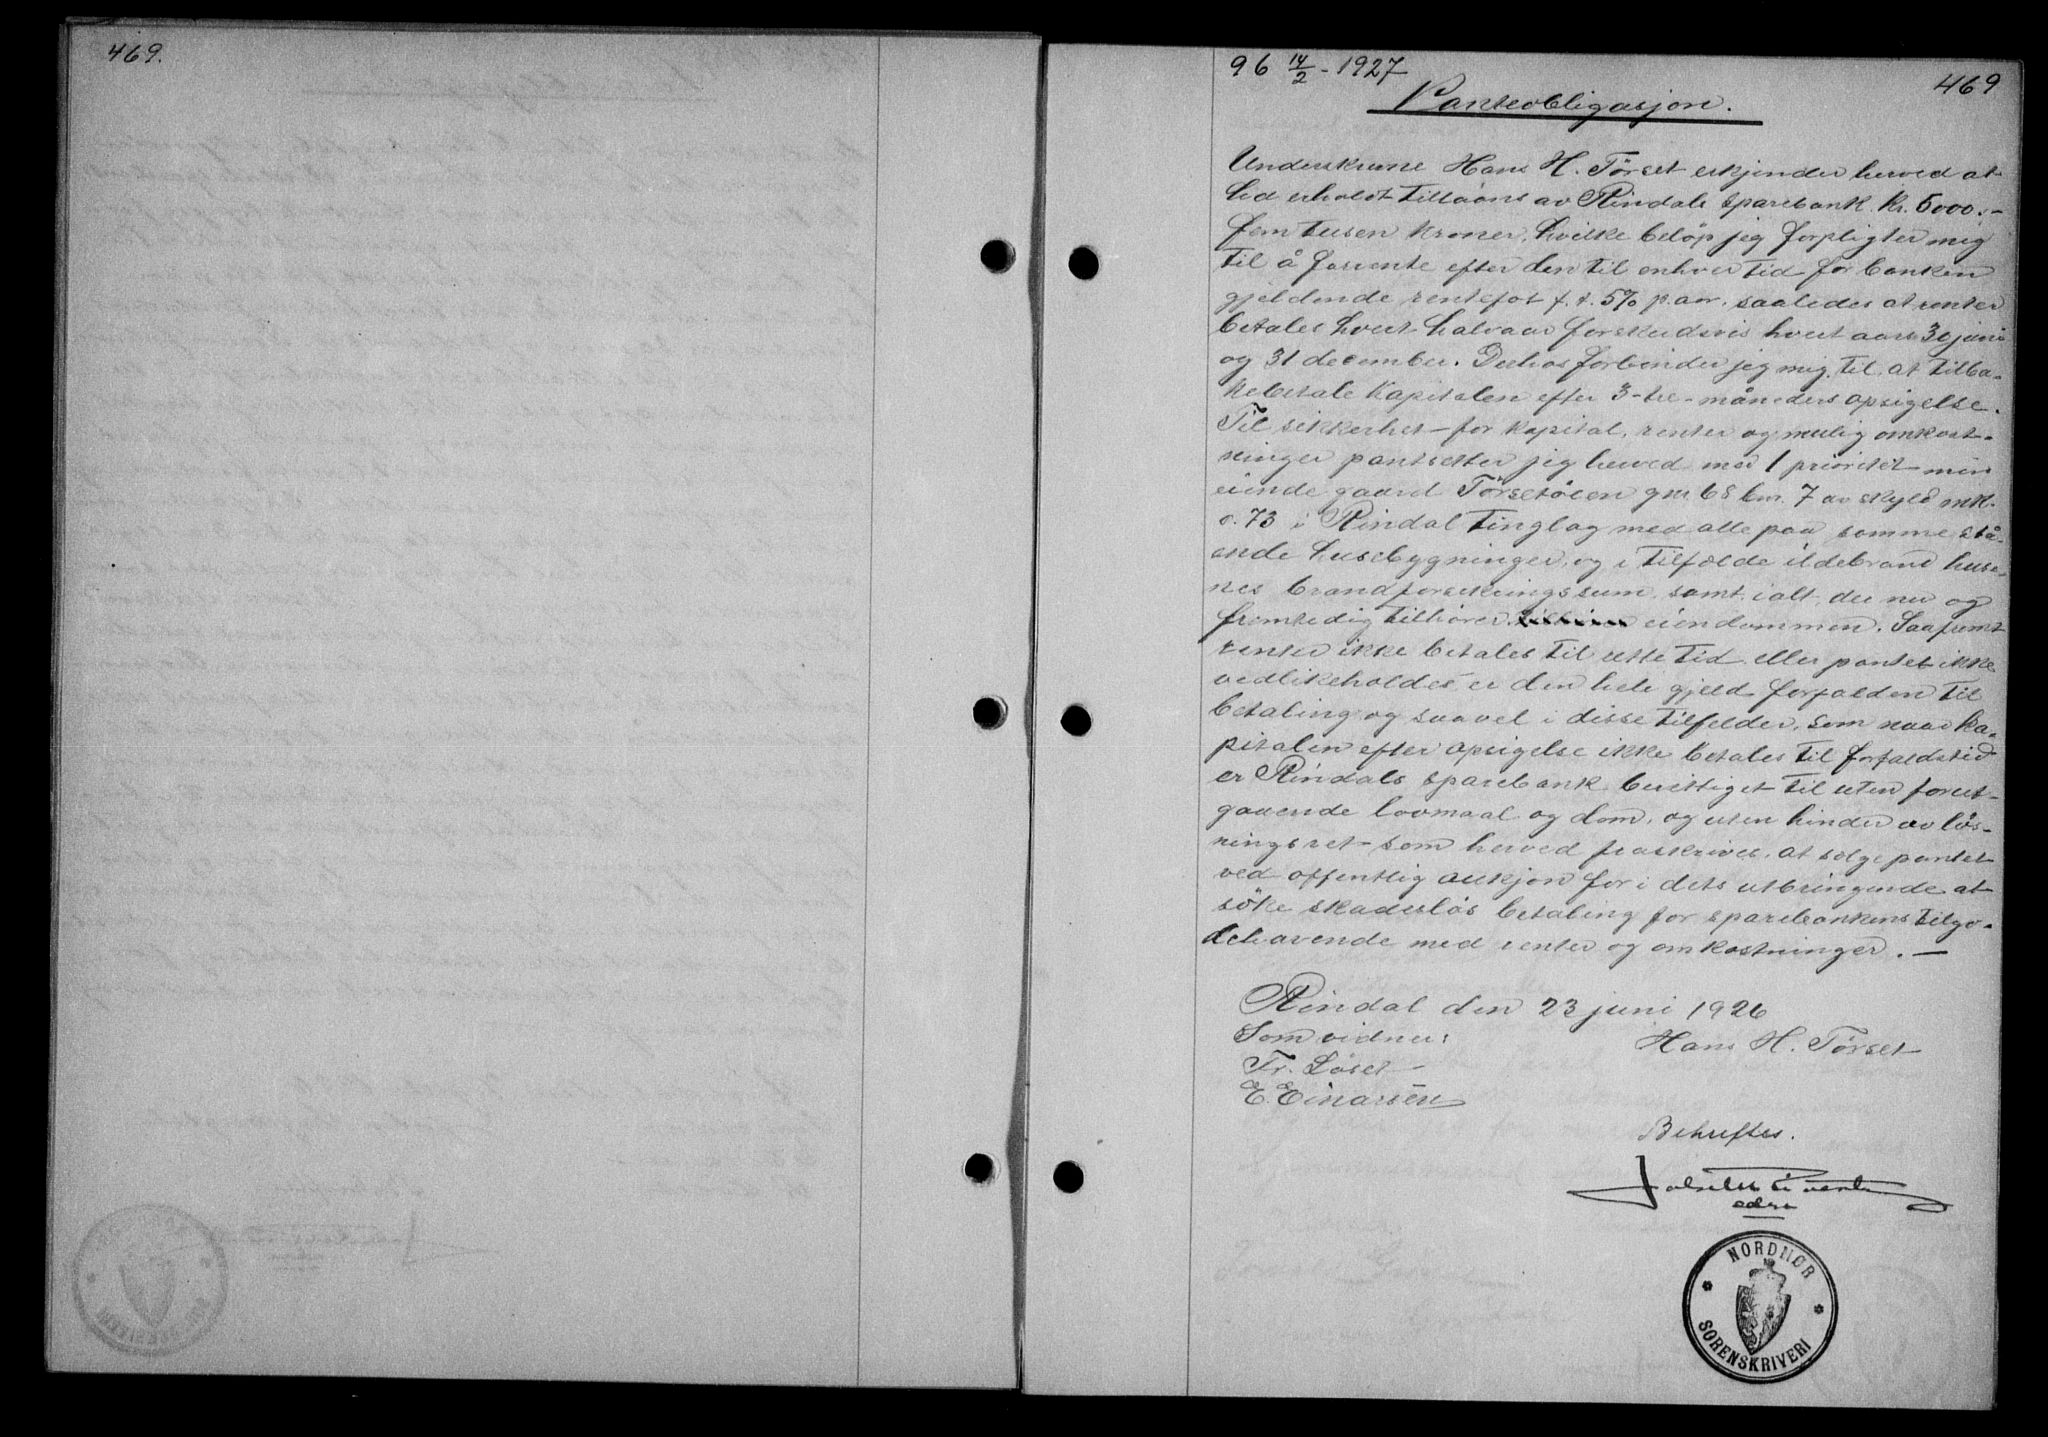 469.
96 14/2 - 1927
469
Panteobligasjon.
Underskrevne Hans H. Tørset erkjender herved at
ha erholdt tillaans av Rindals sparebank kr. 5000.-
fem tusen kroner, hvilke beløp jeg forpligter mig
til å forrente efter den til enhver tid for banken
gjeldende rentefot f.t. 5% p. aar. saaledes at renter
betales hvert halvaar forskudsvis hvert aars 30 juni
og 31 december. Derhos forbinder jeg mig til at tilba-
kebetale kapitalen efter 3-tre-måneders opsigelse.
Til sikkerhet for kapital, renter og mulig omkost-
ninger pantsetter jeg herved med 1 prioritet min
eiende gaard Törsetöien gnr 68 bnr. 7 av skyld mk.
0.73 i Rindal tinglag med alle paa samme stå-
ende husebygninger, og i tilfælde ildebrand huse-
nes brandforsikringssum, samt ialt der nu og
fremtidig tilhører tilhører eiendommen. Saafremt
renter ikke betales til rette tid eller pantet ikke
vedlikeholdes er den hele gjeld forfalden til
betaling og saavel i disse tilfelder, som naar ka-
pitalen efter opsigelse ikke betales til forfaldstid
er Rindals sparebank berettiget til uten forut-
gaaende lovmaal og dom, og uten hinder av løs-
ningsret som herved fraskrives, at selge pantet
ved offentlig auksjon for i dets utbringende at
söke skadesløs betaling for sparebankens tilgo-
dehavende med renter og omkostninger. -
Rindal den 23 juni 1926
Som vidner:
Hans H. Tørset
Fr. Løset
E. Einarsen
Bekreftes.
edsv
NORDMØR
SORENSKRIVERI